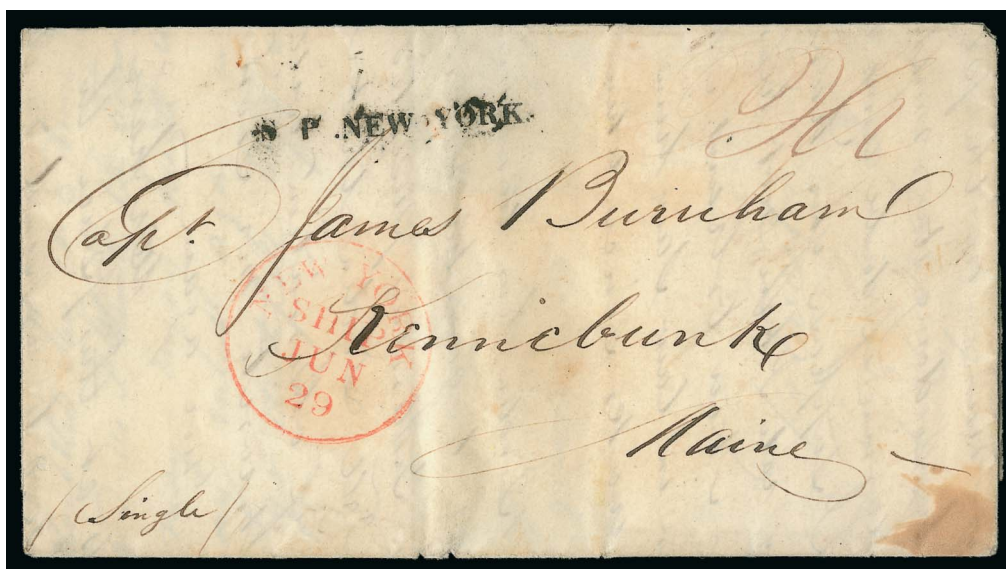 S P NEW-YORK.
Capt. James Burnham
NEW-YORK
SHIP
JUN
29
Kennebunk
Maine
(Single)